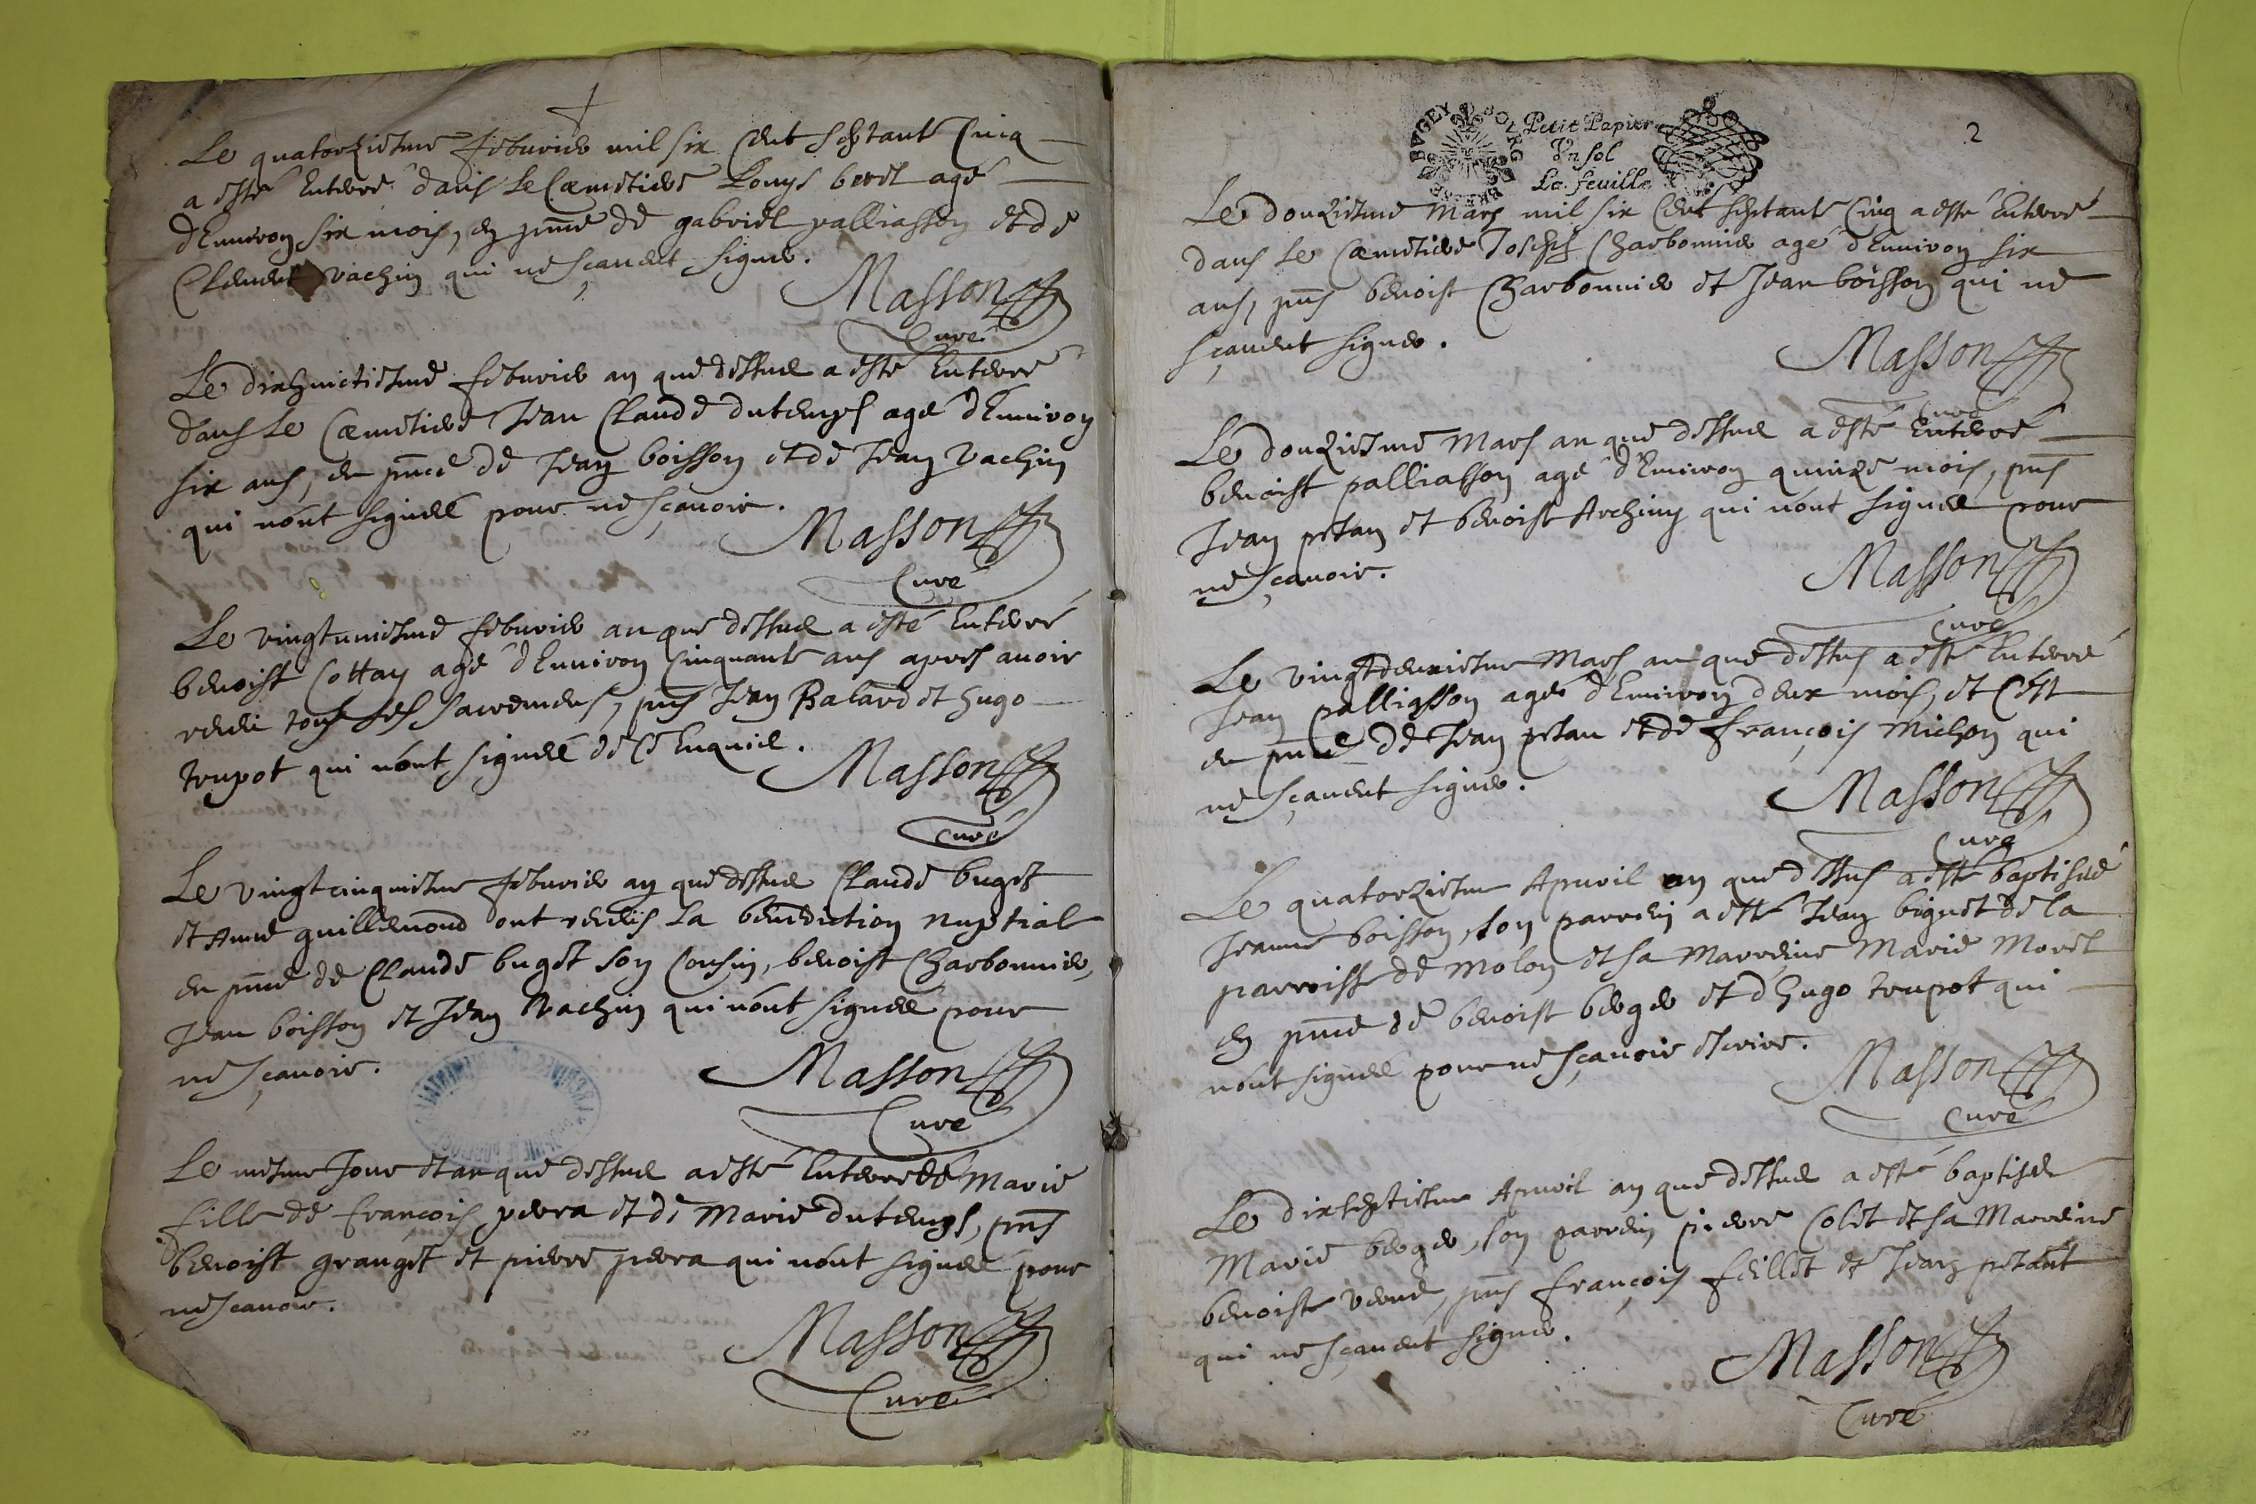 Le quatorziesme feburier mil six cent septante Cinq
a esté Enterré dans Le Cæmetiere Louys beret agé
d'Enuiron six mois, en pnce de gabriel palliasson et de
Clement vachin qui ne sçauent signer.
Masson
Curé
Le dixhuictiesme feburier an que dessus a esté Enterré
dans Le Cæmetiere Jean Claude dutemps agé d'Enuiron
six ans, en pnce de Jean boisson et de Jean Vachin
qui n'ont signés pour ne sçauoir.
Masson
Curé
Le vingtuniesme feburier an que dessus a esté Enterré
benoist Cottay agé d'Enuiron Cinquante ans apres auoir
receu tous ses sacremens, pns Jean Balard et hugo
trupot qui n'ont signés de ce Enquis.
Masson
Curé
Le vingtcinquiesme feburier an que dessus Claude buget
et Anne guillermond ont receus La benediction nuptial
en pnce de Claude buget son Cousin, benoist Charbonnier,
Jean boisson et Jean Vachin qui n'ont signés pour
ne sçauoir.
Masson
Curé
Le mesme Jour et an que dessus a esté Enterrée Marie
fille de françois perra et de Marie dutemps, pns
benoist granget et pierre perra qui n'ont signés pour
ne scauoir.
Masson
Curé
2
BRESSE BVGEY BOVRG
Petit Papier
Vn sol
La feuille
Le douziesme Mars mil six Cent septante Cinq a esté Enterré
dans Le Cæmetiere Joseph Charbonnier agé d'Enuiron six
ans, pns benoist Charbonnier et Jean boisson qui ne
sçauent signer.
Masson
Curé
Le douziesme Mars an que dessus a esté Enterré
benoist palliasson agé d'Enuiron quinze mois, pns
Jean petan et benoist Archiny qui n'ont signés pour
ne sçauoir.
Masson
Curé
Le vingtdeuxiesme Mars an que dessus a esté Enterré
Jean palliasson agé d'Enuiron deux mois, et C'est
en pnce de Jean petan et de françois Michon qui
ne sçauent signer.
Masson
Curé
Le quatorziesme Apuril an que dessus a esté baptisée
Jeanne boisson, son parrein a esté Jean biguet de la
parroisse de molon et sa Marreine Marie Morel
en pnce de benoist berger et d'hugo trupot qui
n'ont signés pour ne sçauoir escrire.
Masson
Curé
Le dixseptiesme Apuril an que dessus a esté baptisée
Marie berger, son parrein pierre Colet et sa Marreine
benoiste verne, pns françois feillet et Jean petant
qui ne sçauent signer.
Masson
Curé